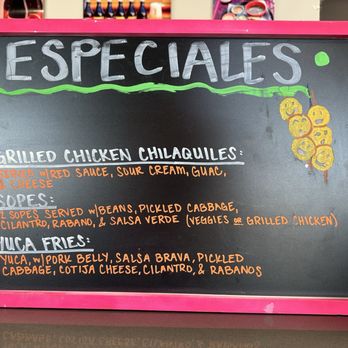 ESPECIALES
GRILLED CHICKEN CHILAQUILES:
W/RED SAUCE, SOUR CREAM, GUAC,
& CHEESE
SOPES:
2 SOPES SERVED W/BEANS, PICKLED CABBAGE,
CILANTRO, RABANO, & SALSA VERDE (VEGGIES OR GRILLED CHICKEN)
YUCA FRIES:
YUCA, W/PORK BELLY, SALSA BRAVA, PICKLED
CABBAGE, COTIJA CHEESE, CILANTRO, & RABANOS